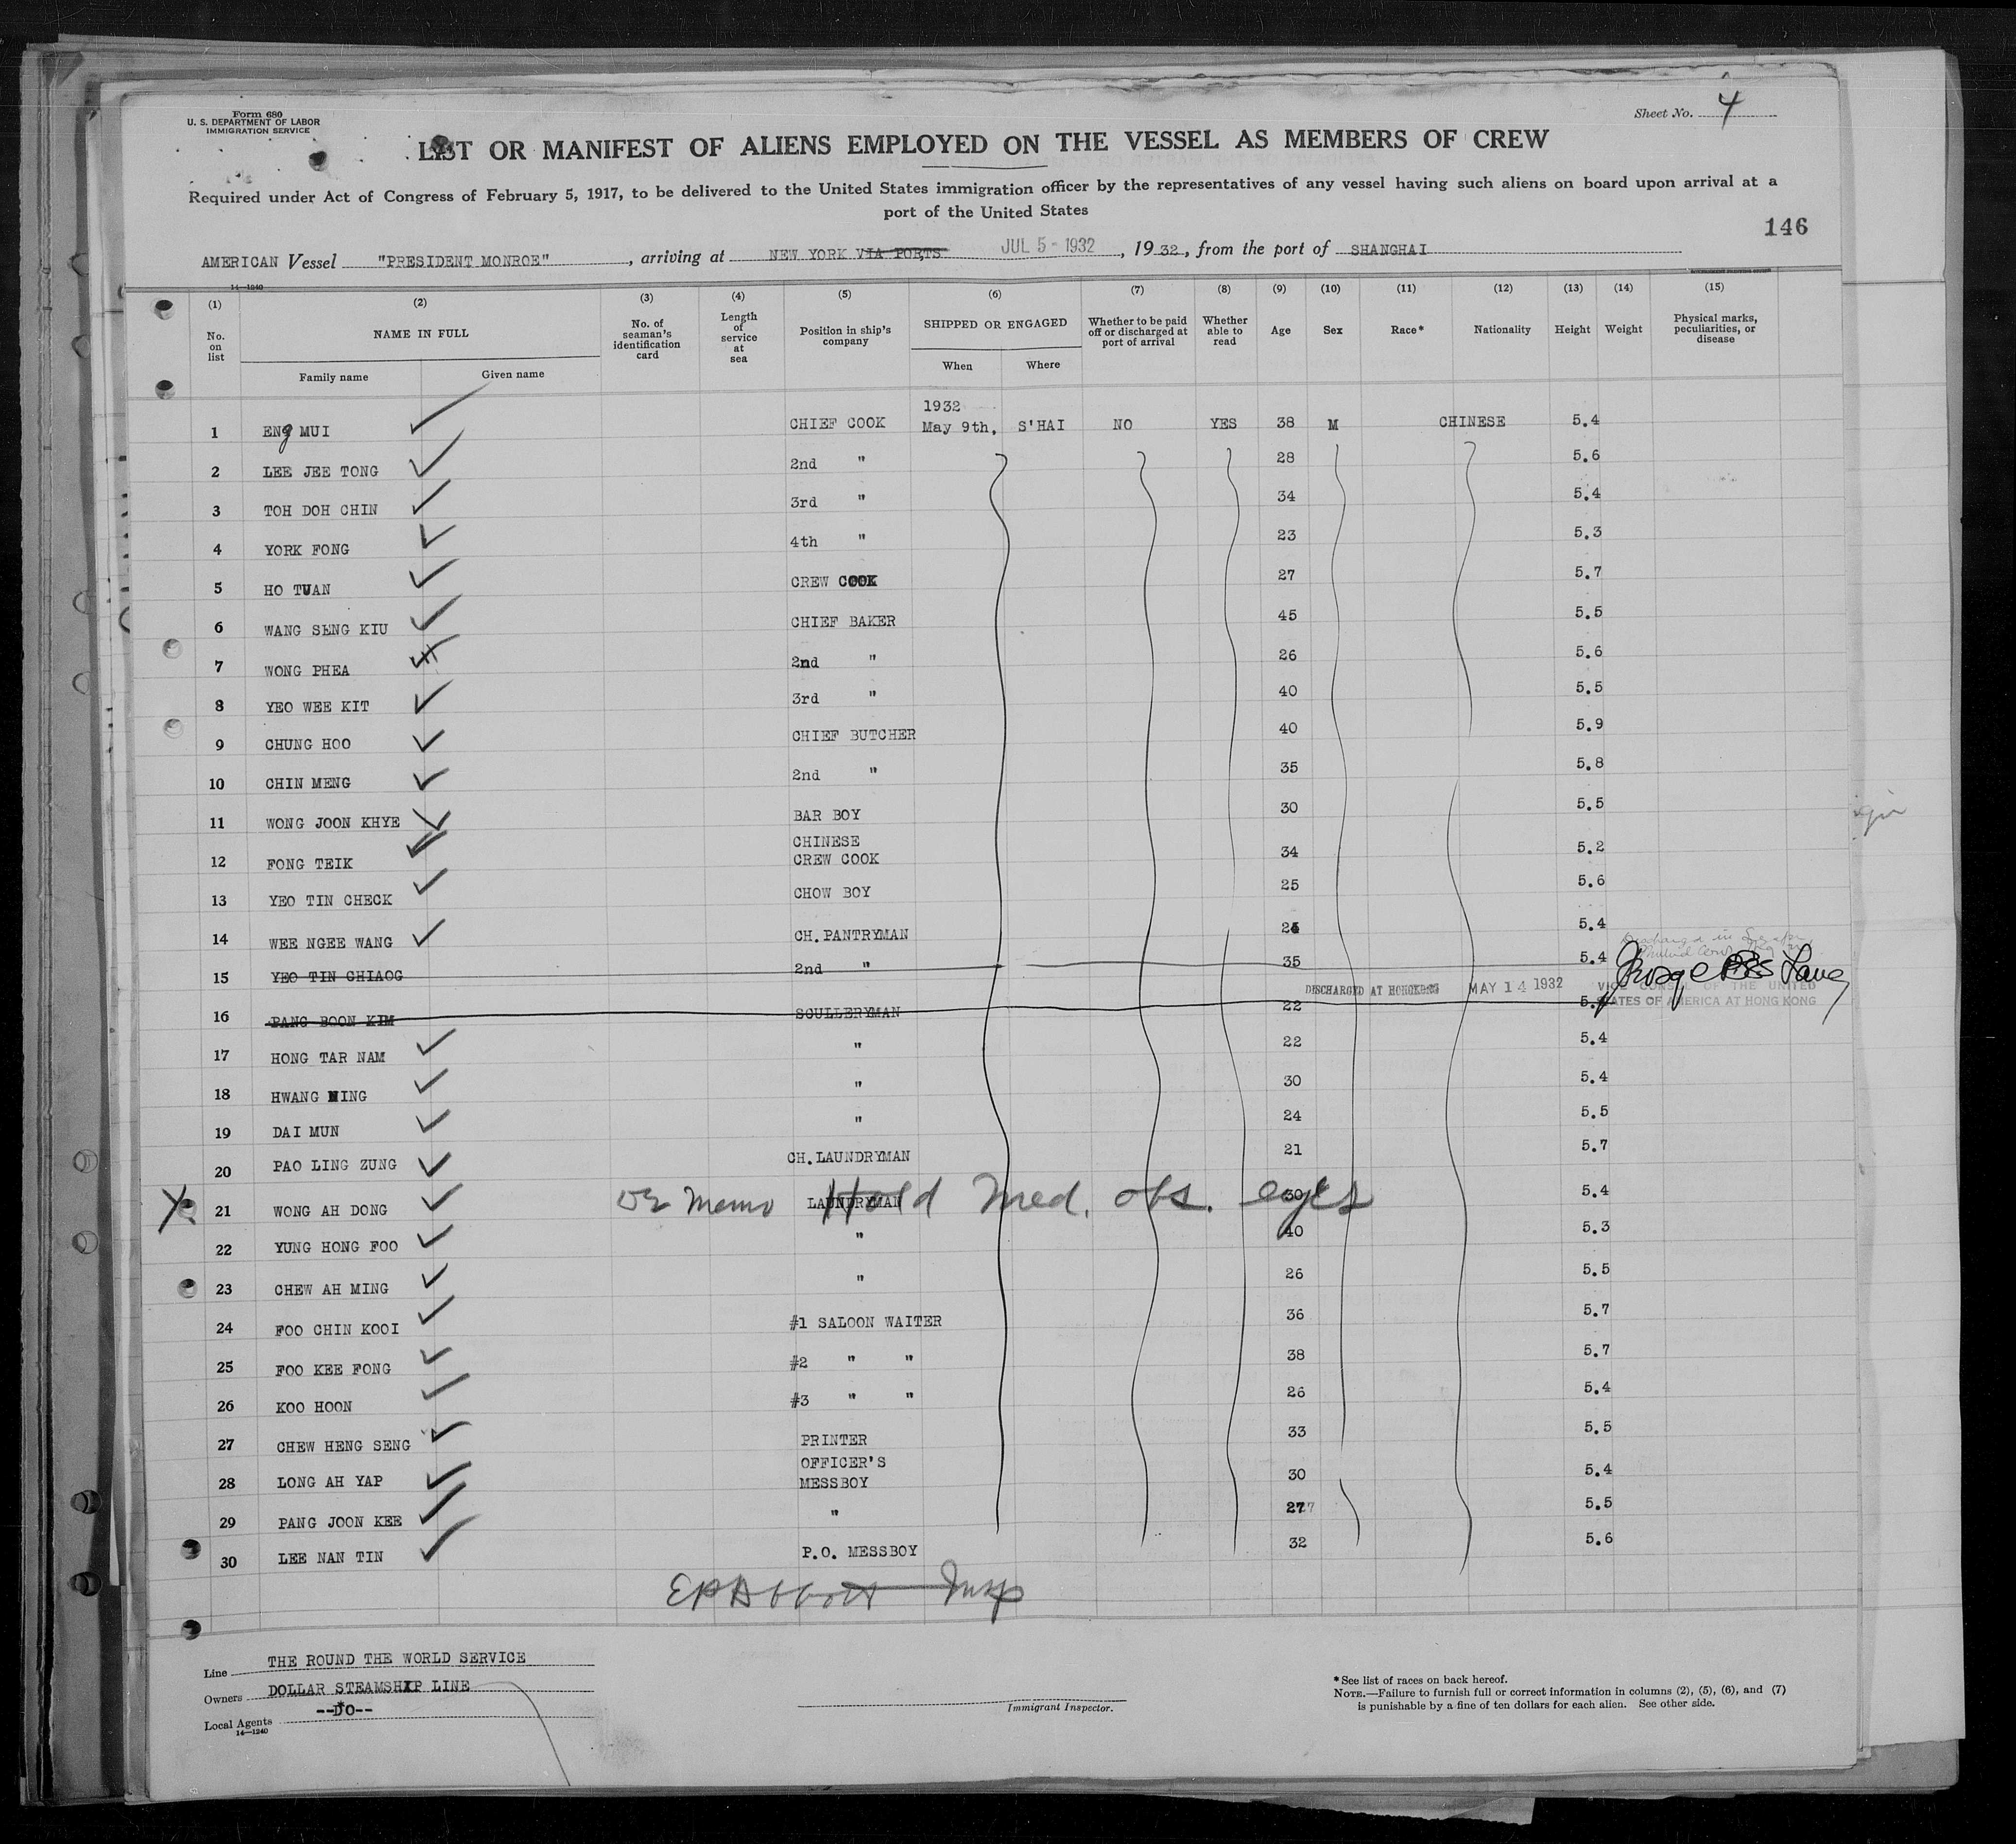 Form 680
U. S. DEPARTMENT OF LABOR
IMMIGRATION SERVICE
Sheet No. 4
LIST OR MANIFEST OF ALIENS EMPLOYED ON THE VESSEL AS MEMBERS OF CREW
Required under Act of Congress of February 5, 1917, to be delivered to the United States immigration officer by the representatives of any vessel having such aliens on board upon arrival at a
port of the United States
146
AMERICAN Vessel "PRESIDENT MONROE", arriving at NEW YORK VIA PORTS JUL 5 - 1932, 1932, from the port of SHANGHAI
14—1240
(1) (2) (3) (4) (5) (6) (7) (8) (9) (10) (11) (12) (13) (14) (15)
No. on list NAME IN FULL No. of seaman's identification card Length of service at sea Position in ship's company SHIPPED OR ENGAGED Whether to be paid off or discharged at port of arrival Whether able to read Age Sex Race* Nationality Height Weight Physical marks, peculiarities, or disease
Family name Given name When Where
1932
1 ENg MUI CHIEF COOK May 9th, S'HAI NO YES 38 M CHINESE 5.4
2 LEE JEE TONG 2nd " 28 5.6
3 TOH DOH CHIN 3rd " 34 5.4
4 YORK FONG 4th " 23 5.3
5 HO TUAN CREW COOK 27 5.7
6 WANG SENG KIU CHIEF BAKER 45 5.5
7 WONG PHEA 2nd " 26 5.6
8 YEO WEE KIT 3rd " 40 5.5
9 CHUNG HOO CHIEF BUTCHER 40 5.9
10 CHIN MENG 2nd " 35 5.8
11 WONG JOON KHYE BAR BOY 30 5.5
12 FONG TEIK CHINESE CREW COOK 34 5.2
13 YEO TIN CHECK CHOW BOY 25 5.6
14 WEE NGEE WANG CH. PANTRYMAN 5.4
15 YEO TIN CHIAOG 2nd " 35 5.4
DISCHARGED AT HONGKONG MAY 14 1932 VICE CONSUL OF THE UNITED
STATES OF AMERICA AT HONG KONG
16 PANG BOON KIM SCULLERYMAN 22
17 HONG TAR NAM " 22 5.4
18 HWANG NING " 30 5.4
19 DAI MUN " 24 5.5
20 PAO LING ZUNG CH. LAUNDRYMAN 21 5.7
21 WONG AH DONG LAUNDRYMAN 30 5.4
Memo Hold Med. obs. eyes
22 YUNG HONG FOO " 40 5.3
23 CHEW AH MING " 26 5.5
24 FOO CHIN KOOI #1 SALOON WAITER 36 5.7
25 FOO KEE FONG #2 " " 38 5.7
26 KOO HOON #3 " " 26 5.4
27 CHEW HENG SENG PRINTER 33 5.5
28 LONG AH YAP OFFICER'S MESSBOY 30 5.4
29 PANG JOON KEE " 27 5.5
30 LEE NAN TIN P.O. MESSBOY 32 5.6
EP Abbott Insp
Line THE ROUND THE WORLD SERVICE
Owners DOLLAR STEAMSHIP LINE
Local Agents --DO--
14—1240
Immigrant Inspector.
*See list of races on back hereof.
NOTE.—Failure to furnish full or correct information in columns (2), (5), (6), and (7)
is punishable by a fine of ten dollars for each alien. See other side.